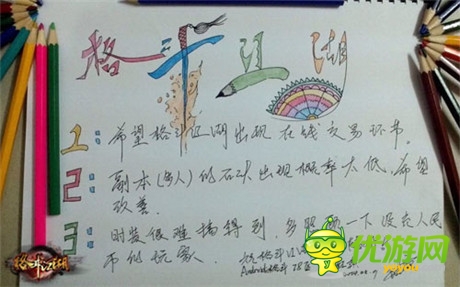 格斗江湖
1 希望格斗江湖出现在线交易环节。
2 副本(多人)的石头出现概率太低,希望
改善.
3 时装很难搞得到,多照顾一下没充人民
币的玩家.
格斗江湖
Android
优游网
YOYOU